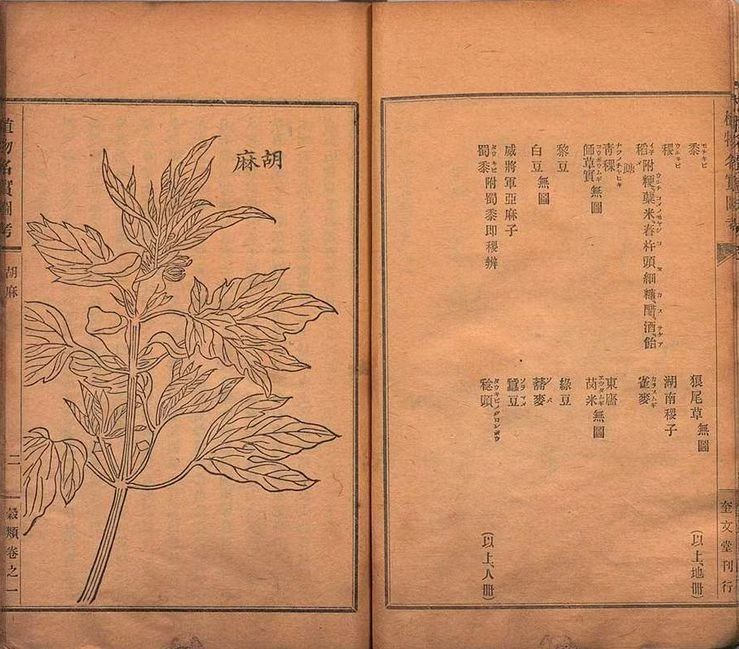 植物名實圖考
奎文堂刊行
黍 モチキビ
狼尾草 無圖
(以上、地冊)
稷 ウルキビ
湖南稷子
稻 附粳糵米舂杵頭細糠醋酒飴
雀麥 カラスムギ
青稞
東廧
師草實 無圖
米 無圖
黎豆
綠豆
白豆 無圖
蕎麥 ソバ
威將軍亞麻子
蠶豆 ソラマメ
蜀黍附蜀黍即稷辨
稔頭
(以上、人冊)
胡麻
植物名實圖考
胡麻
二
穀類卷之一